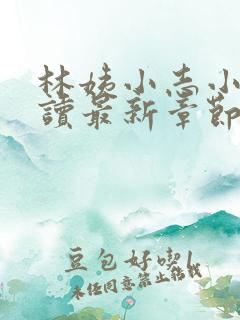 林姨小志小
讀最新章節
豆包好喫
未经同意禁止搭讪